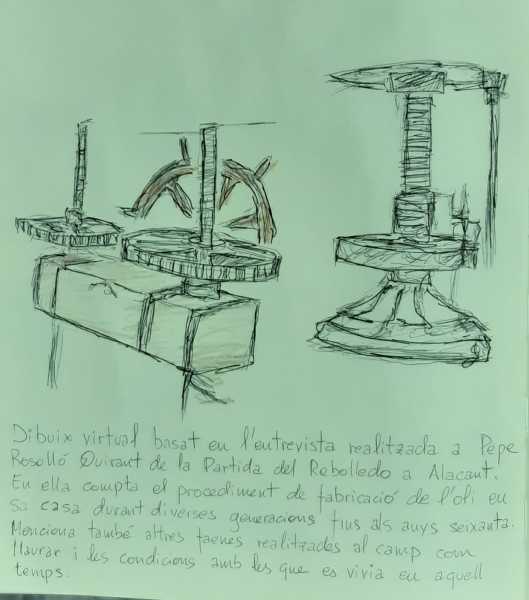 Dibuix virtual basat en l'entrevista realitzada a Pepe
Rosolló Quirant de la Partida del Rebolledo a Alacant.
En ella compta el procediment de fabricació de l'oli en
sa casa durant diverses generacions fins als anys seixanta.
Menciona també altres faenes realitzades al camp com
llaurar i les condicions amb les que es vivia en aquell
temps.